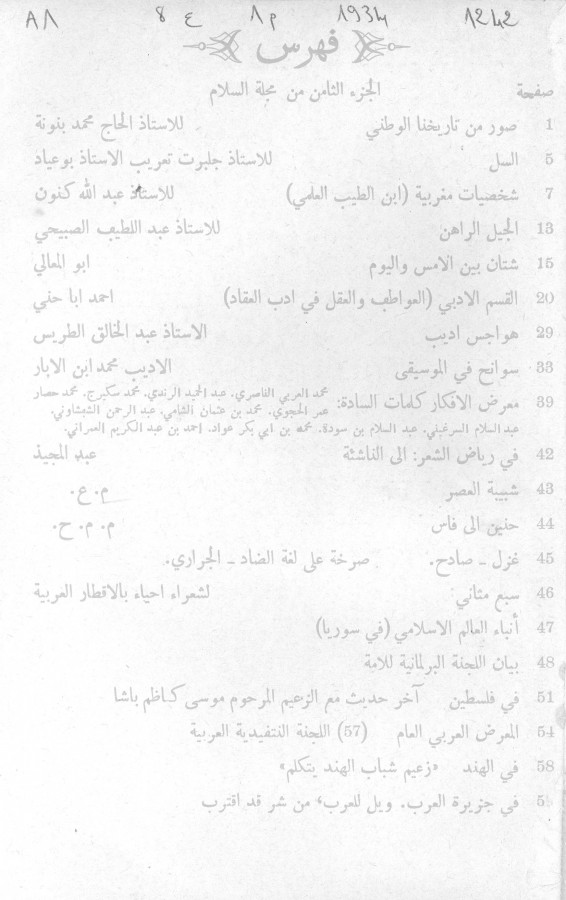 A1 8 ع 1 م 1934 1242
فهرس
صفحة الجزء الثامن من مجلة السلام
1 صور من تاريخنا الوطني للاستاذ الحاج محمد بنونة
5 السل للاستاذ جلبرت تعريب الاستاذ بوعياد
7 شخصيات مغربية (ابن الطيب العلمي) للاستاذ عبد الله كنون
13 الجيل الراهن للاستاذ عبد اللطيف الصبيحي
15 شتان بين الامس واليوم ابو المعالي
20 القسم الادبي (العواطف والعقل في ادب العقاد) احمد ابا حني
29 هواجس اديب الاستاذ عبد الخالق الطريس
33 سوانح في الموسيقى الاديب محمد ابن الابار
39 معرض الافكار كلمات السادة: محمد العربي الناصري. عبد الحميد الرندي. محمد سكيرج. محمد حصار
عمر الحجوي. محمد بن عثمان الشامي. عبد الرحمن الشفشاوني.
عبد السلام السرغيني. عبد السلام بن سودة. محمد بن ابي بكر عواد. احمد بن عبد الكريم العمراني.
42 في رياض الشعر: الى الناشئة عبد المجيد
43 شبيبة العصر م. ع.
44 حنين الى فاس م. م. ح.
45 غزل ـ صادح. صرخة على لغة الضاد ـ الجراري.
46 سبع مثاني لشعراء احياء بالاقطار العربية
47 أنباء العالم الاسلامي (في سوريا)
48 بيان اللجنة البرلمانية للامة
51 في فلسطين آخر حديث مع الزعيم المرحوم موسى كاظم باشا
54 المعرض العربي العام (57) اللجنة التنفيدية العربية
58 في الهند «زعيم شباب الهند يتكلم»
5 في جزيرة العرب. ويل للعرب، من شر قد اقترب